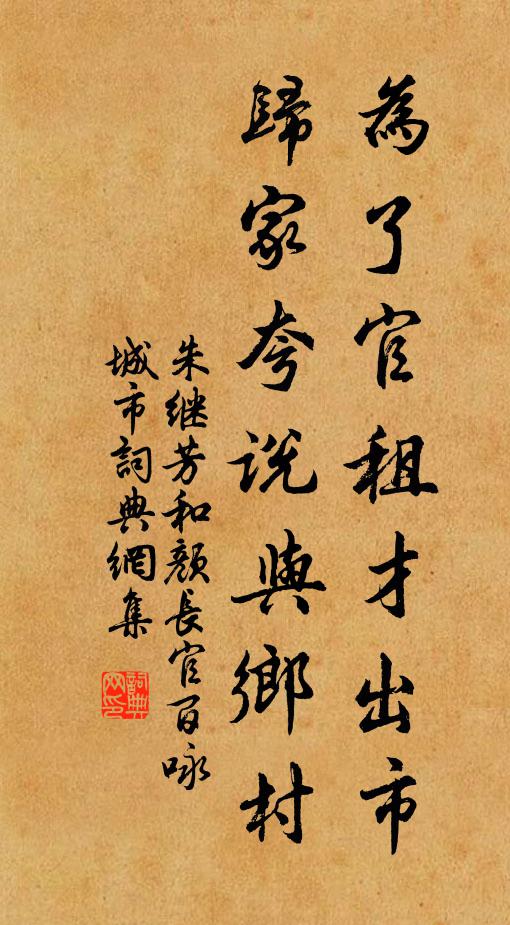 為了官租才出市
歸家夸説與鄉村
朱继芳和顏長官百咏
城市詞典網集
詞典
网印